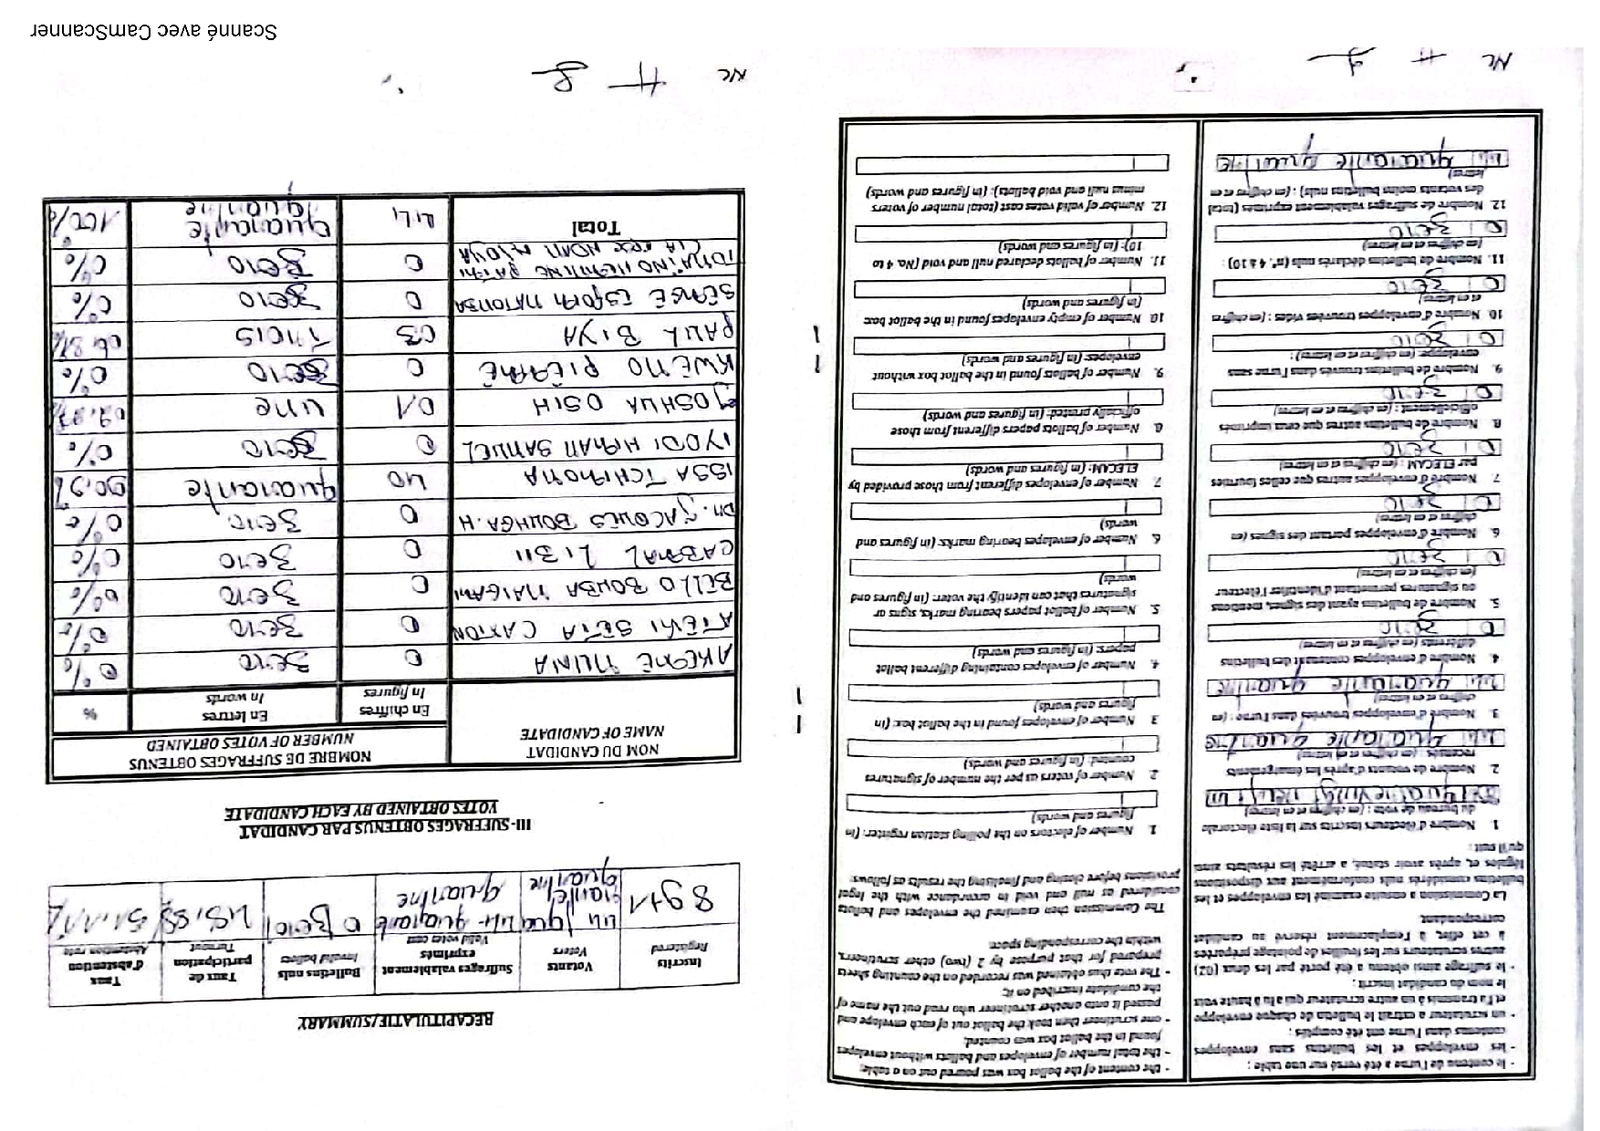 - le contenu de l'urne a été versé sur une table ;
- les enveloppes et les bulletins sans enveloppes
contenus dans l'urne ont été comptés ;
- un scrutateur a extrait le bulletin de chaque enveloppe
et l'a transmis à un autre scrutateur qui a lu à haute voix
le nom du candidat inscrit ;
- le suffrage ainsi obtenu a été porté par les deux (02)
autres scrutateurs sur les feuilles de pointage préparées
à cet effet, à l'emplacement réservé au candidat
correspondant.
La Commission a ensuite examiné les enveloppes et les
bulletins considérés nuls conformément aux dispositions
légales et, après avoir statué, a arrêté les résultats ainsi
qu'il suit :
1. Nombre d'électeurs inscrits sur la liste électorale
du bureau de vote : (en chiffres et en lettres)
2. Nombre de votants d'après les émargements
recensés : (en chiffres et en lettres)
44 quarante quatre
3. Nombre d'enveloppes trouvées dans l'urne : (en
chiffres et en lettres)
44 quarante quatre
4. Nombre d'enveloppes contenant des bulletins
différents (en chiffres et en lettres)
0 zero
5. Nombre de bulletins ayant des signes, mentions
ou signatures permettant d'identifier l'électeur
(en chiffres et en lettres)
0 zero
6. Nombre d'enveloppes portant des signes (en
chiffres et en lettres)
0 zero
7 Nombre d'enveloppes autres que celles fournies
par ELECAM : (en chiffres et en lettres)
0 zero
8. Nombre de bulletins autres que ceux imprimés
officiellement : (en chiffres et en lettres)
0 zero
9. Nombre de bulletins trouvés dans l'urne sans
enveloppe: (en chiffres et en lettres) :
0 zero
10 Nombre d'enveloppes trouvées vides : (en chiffres
et en lettres)
0 zero
11. Nombre de bulletins déclarés nuls (n°. 4 à 10) :
(en chiffres et en lettres)
0 zero
12 Nombre de suffrages valablement exprimés (total
des votants moins bulletins nuls) : (en chiffres et en
lettres)
44 quarante quatre
- the content of the ballot box was poured out on a table;
- the total number of envelopes and ballots without envelopes
found in the ballot box was counted;
- one scrutineer then took the ballot out of each envelope and
passed it onto another scrutineer who read out the name of
the candidate inscribed on it;
- The vote thus obtained was recorded on the counting sheets
prepared for that purpose by 2 (two) other scrutineers,
within the corresponding space.
The Commission then examined the envelopes and ballots
considered as null and void in accordance with the legal
provisions before closing and finalisting the results as follows:
1. Number of electors on the polling station register: (in
figures and words)
2 Number of voters as per the number of signatures
counted: (in figures and words)
3 Number of envelopes found in the ballot box: (in
figures and words)
4. Number of envelopes containing different ballot
papers: (in figures and words)
5. Number of ballot papers bearing marks, signs or
signatures that can identify the voter: (in figures and
words)
6. Number of envelopes bearing marks: (in figures and
words)
7 Number of envelopes different from those provided by
ELECAM: (in figures and words)
8 Number of ballots papers different from those
officially printed: (in figures and words)
9. Number of ballots found in the ballot box without
envelopes: (in figures and words)
10 Number of empty envelopes found in the ballot box:
(in figures and words)
11. Number of ballots declared null and void (No. 4 to
10): (in figures and words)
12. Number of valid votes cast (total number of voters
minus null and void ballots): (in figures and words)
RECAPITULATIF/SUMMARY
Inscrits Registered
Votants Voters
Suffrages valablement exprimés Valid votes cast
Bulletins nuls Invalid ballots
Taux de participation Turnout
Taux d'abstention Abstention rate
44 quarante quatre
44 quarante quatre
0 zero
III- SUFFRAGES OBTENUS PAR CANDIDAT
VOTES OBTAINED BY EACH CANDIDATE
NOM DU CANDIDAT
NAME OF CANDIDATE
NOMBRE DE SUFFRAGES OBTENUS
NUMBER OF VOTES OBTAINED
En chiffres In figures
En lettres In words
%
AKERE MUNA 0 zero 0%
ATEKI SETA CAXTON 0 zero 0%
BELLO BOUBA MAIGARI 0 zero 0%
CABRAL LIBII 0 zero 0%
Dr. JACQUES BOUHGA.H 0 zero 0%
ISSA TCHIROMA 40 quarante
IYODI HIRAM SAMUEL 0 zero 0%
JOSHUA OSIH 01 une
KWEMO PIERRE 0 zero 0%
PAUL BIYA 03 Trois
SERGE ESPOIR MATOMBA 0 zero 0%
TOMAINO HERMINE PATRI
CIA EPSE NDAM NJOYA 0 zero 0%
Total 44 quarante quatre 100%
Scanné avec CamScanner